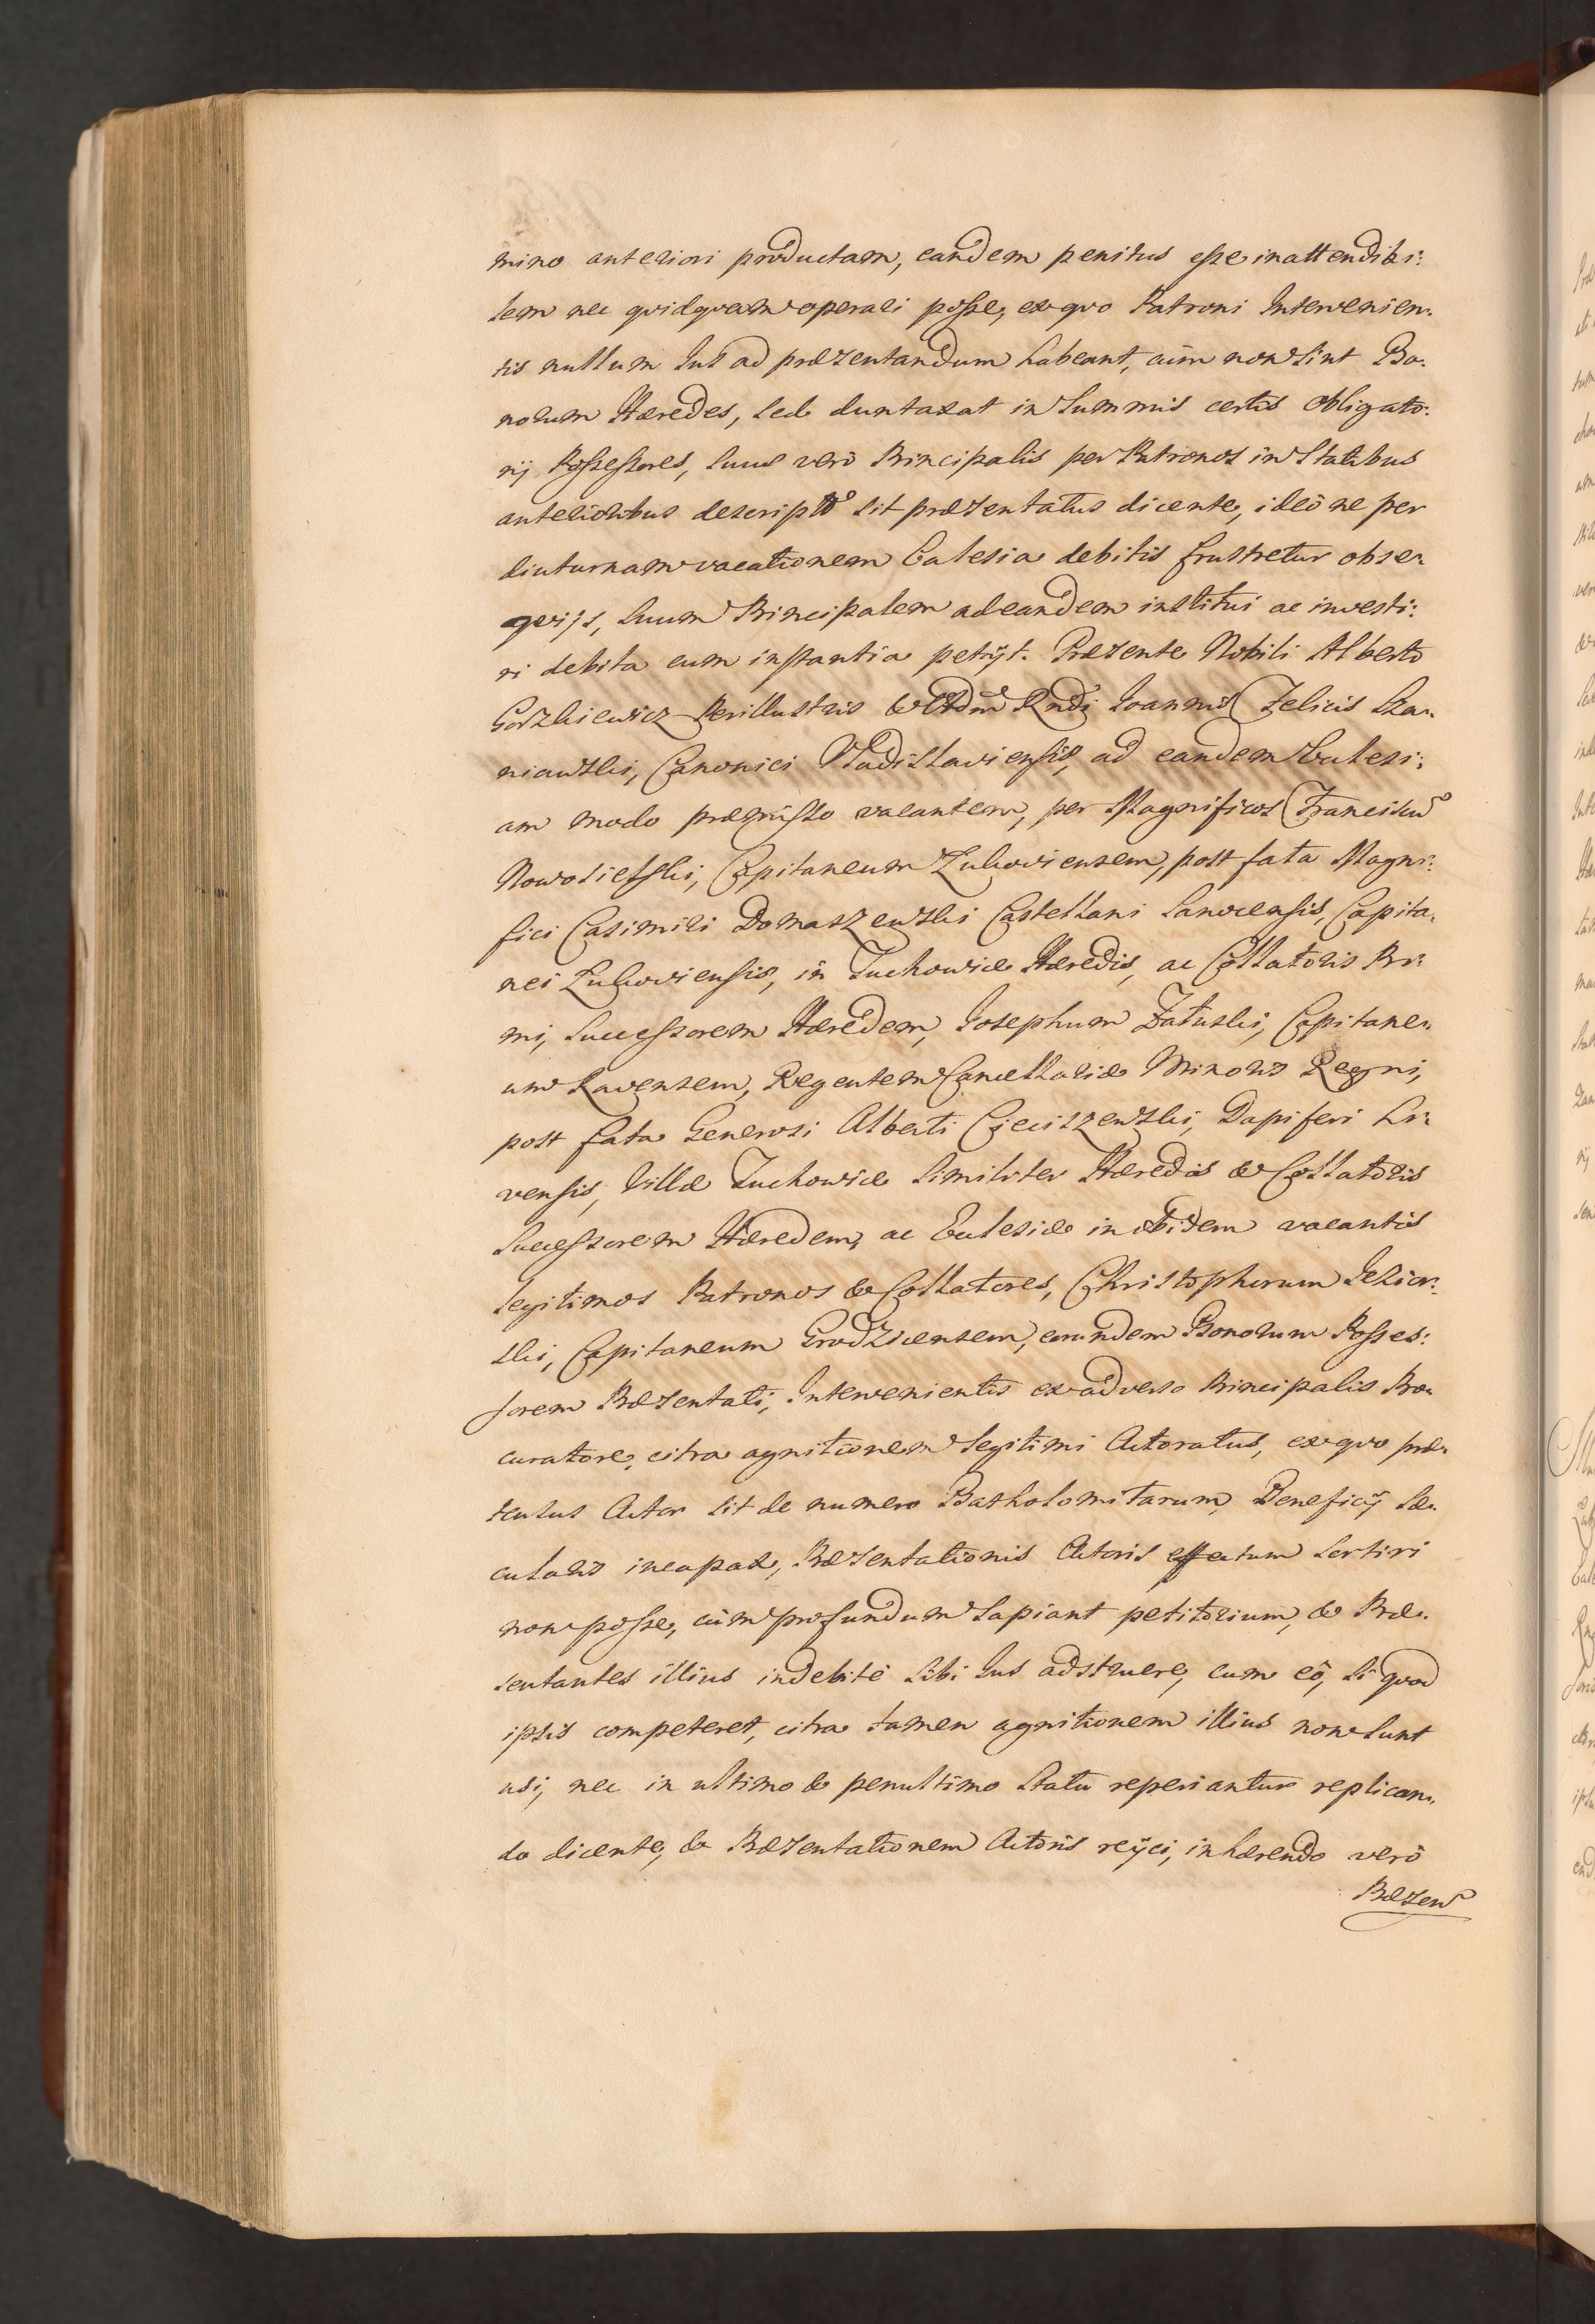 mino anteriori productam, eandem penitus esse inattendibi:
lem nec quidquam operari posse, ex quo Patroni Intervenien:
tis nullum Jus ad præsentandum habeant, cùm non sint Bo:
norum Hæredes, sed duntaxat in Summis certis obligato:
rij Possessores, suus verò Principalis per Patronos in Statibus
anterioribus descriptos sit præsentatus dicente, ideò ne per
diuturnam vacationem Eclesia debitis frustretur obse:
quijs, suum Principalem ad eandem institui ac investi:
ri debita cum instantia petijt. Præsente Nobili Alberto
Gorzkiewicz Perillustris & Adm Rndi Joannis Felicis Sza:
niawski, Canonici Vladislaviensis, ad eandem Eclesi:
am modo præmisso vacantem, per Magnificos Franciscum
Nowosielski, Capitaneum Lukoviensem, post fata Magni:
fici Casimiri Domaszewski Castellani Sanocensis, Capita:
nei Lukoviensis, in Tuchowice Hæredis, ac Collatoris Pri:
mi, Successorem Hæredem, Josephum Załuski, Capitane:
um Ravensem, Regentem Cancellariæ Minoris Regni,
post fata Generosi Alberti Cieciszewski, Dapiferi Li:
vensis, Villæ Tuchowice similiter Hæredis & Collatoris
Successorem Hæredem, ac Eclesiæ inibidem vacantis
legitimos Patronos & Collatores, Christophorum Jezior:
ski, Capitaneum Grodzicensem, eorundem Bonorum Posses:
sorem Præsentati, Intervenientis ex adverso Principalis Pro:
curatore, citra agnitionem legitimi Actoratus, ex quo præ:
tensus Actor sit de numero Bartholomitarum, Beneficij Sæ:
cularis incapax, Præsentationis Actoris effectum sortiri
non posse, cùm profundum sapiant petitorium, & Præ:
sentantes illius indebitè sibi Jus adstruere, cum eò, si quod
ipsis competeret, citra tamen agnitionem illius non sunt
usi, nec in ultimo & penultimo Statu reperiantur replican:
do dicente, & Præsentationem Actoris reijci, inhærendo verò
Præsen